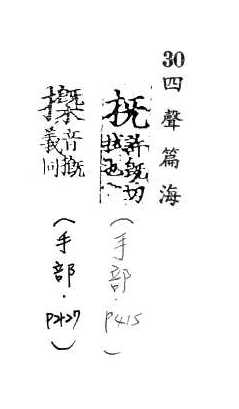 30四聲篇海
抚許旣切
㧞也
（手部．P415）
㩢音摡
義同
（手部．P427）